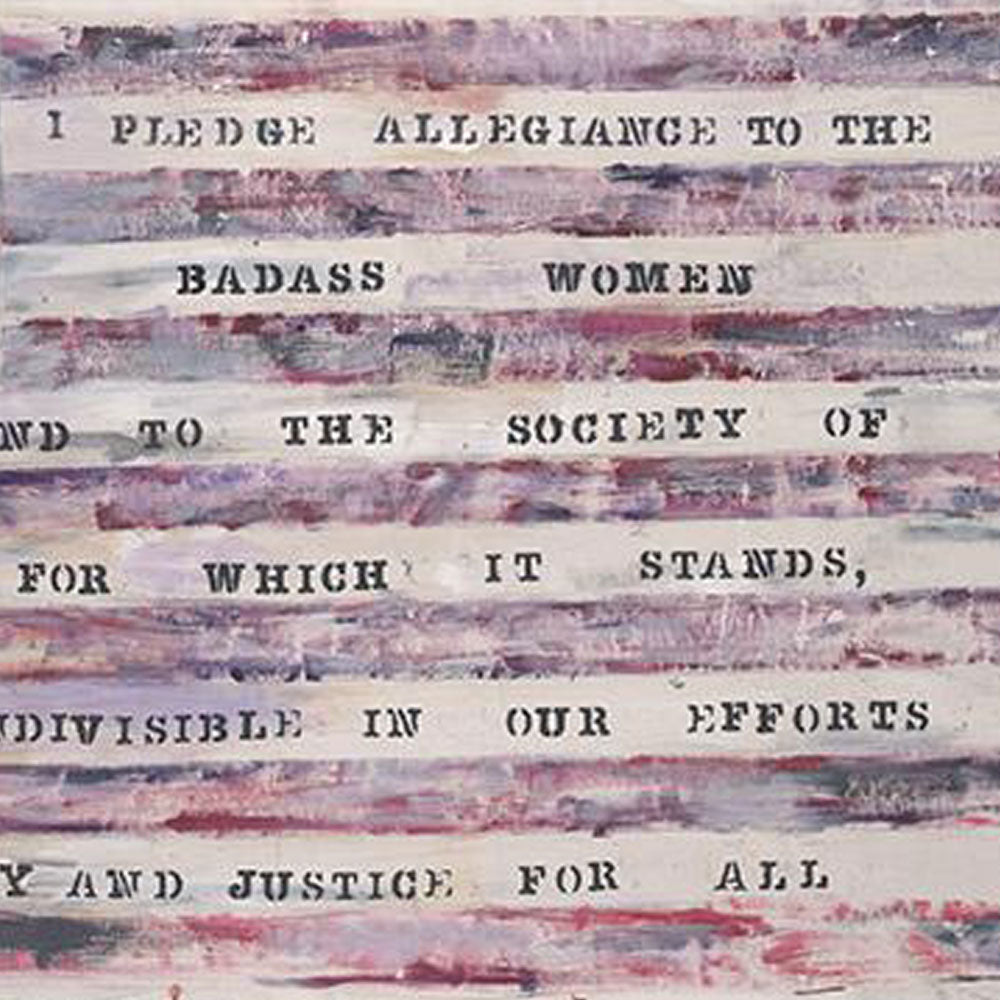 I PLEDGE ALLEGIANCE TO THE
BADASS WOMEN
ND TO THE SOCIETY OF
FOR WHICH IT STANDS,
NDIVISIBLE IN OUR EFFORTS
Y AND JUSTICE FOR ALL